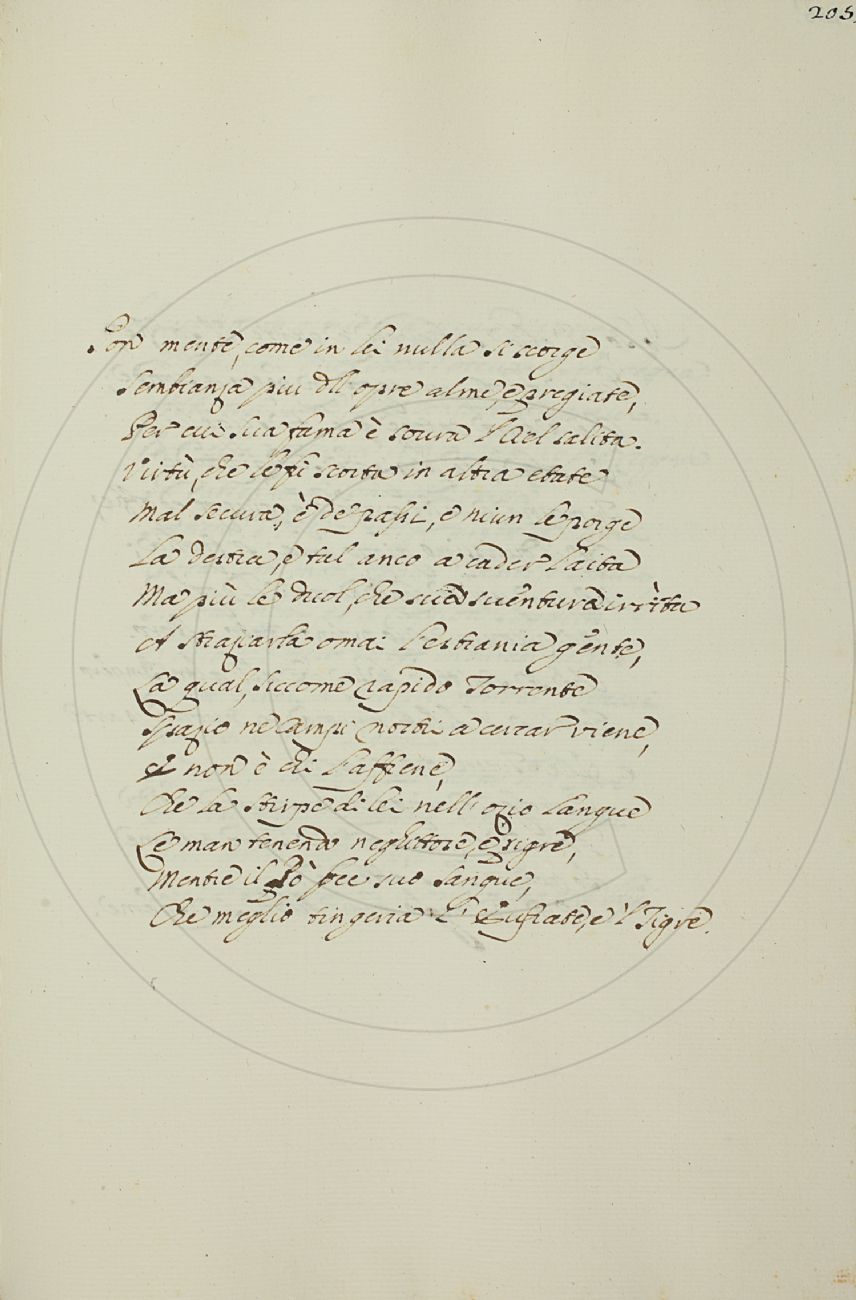 205.
Pon mente, come in lei nulla si scorge
Sembianza piu dll' opre alme, e pregiate,
Per cui sua fama è soura 'l Ciel salita.
Virtù, che le fù scorta in altra etate
Mal secura, è de passi, e niun le porge
La destra, e tal anco a cader l'aita
Ma più le duol, che sua suentura irrìta
A straziarla omai l'estrania gente,
La qual, siccome rapido Torrente
Spazio ne campi nostri a cercar viene,
E non è chi l'affrene,
Che la stirpe di lei nell' ozio langue
Le man tenendo neghittose, e pigre,
Mentre il Pò fece suo sangue,
Che meglio tingeria l' Eufrate, e 'l Tigre.